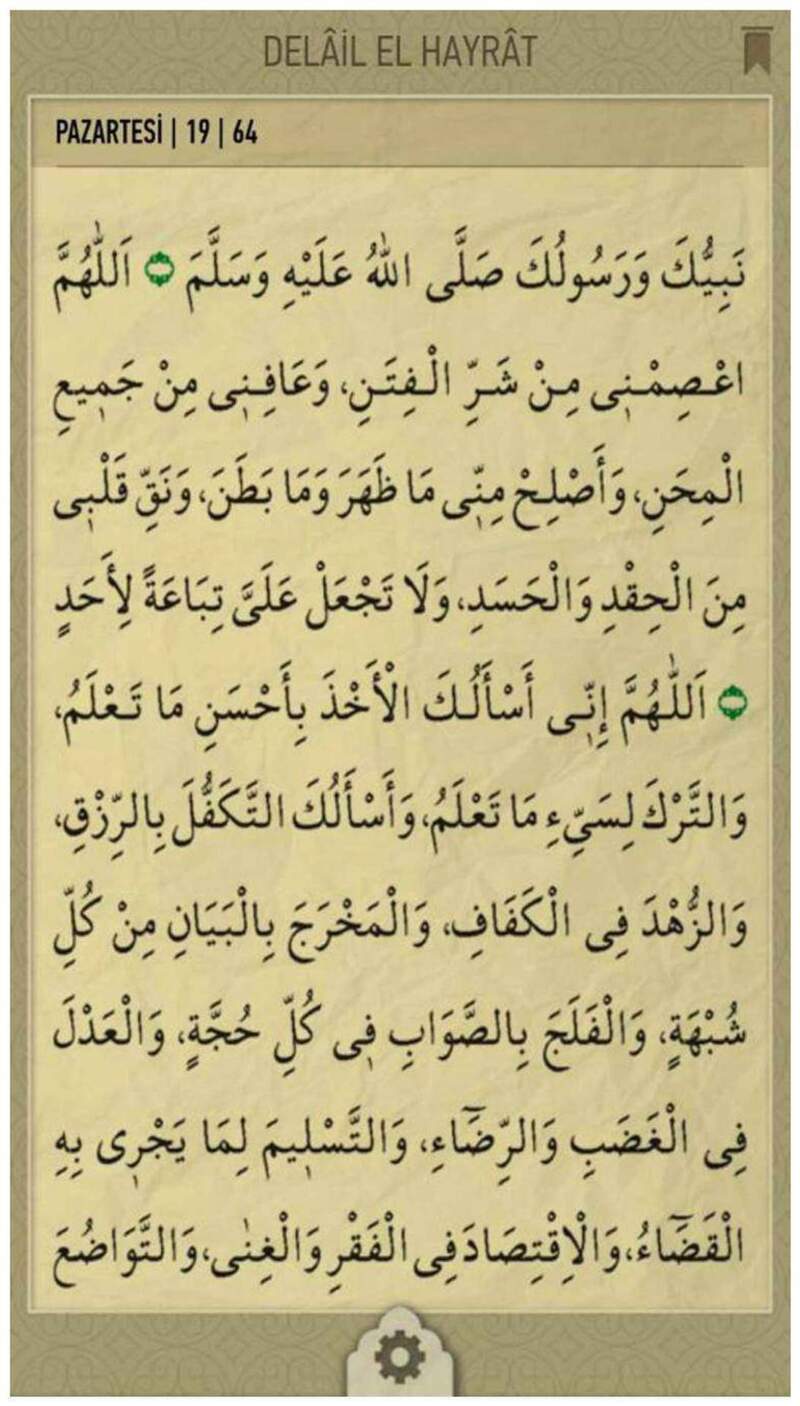 DELÂİL EL HAYRÂT
PAZARTESİ | 19 | 64
نَبِيُّكَ وَرَسُولُكَ صَلَّى اللّٰهُ عَلَيْهِ وَسَلَّمَ اَللّٰهُمَّ
اعْصِمْنٖى مِنْ شَرِّ الْفِتَنِ، وَعَافِنٖى مِنْ جَمٖيعِ
الْمِحَنِ، وَأَصْلِحْ مِنّٖى مَا ظَهَرَ وَمَا بَطَنَ، وَنَقِّ قَلْبٖى
مِنَ الْحِقْدِ وَالْحَسَدِ، وَلَا تَجْعَلْ عَلَىَّ تِبَاعَةً لِأَحَدٍ
اَللّٰهُمَّ إِنّٖى أَسْأَلُكَ الْأَخْذَ بِأَحْسَنِ مَا تَعْلَمُ،
وَالتَّرْكَ لِسَيِّءِ مَا تَعْلَمُ، وَأَسْأَلُكَ التَّكَفُّلَ بِالرِّزْقِ،
وَالزُّهْدَ فِى الْكَفَافِ، وَالْمَخْرَجَ بِالْبَيَانِ مِنْ كُلِّ
شُبْهَةٍ، وَالْفَلَجَ بِالصَّوَابِ فٖى كُلِّ حُجَّةٍ، وَالْعَدْلَ
فِى الْغَضَبِ وَالرِّضَٓاءِ، وَالتَّسْلٖيمَ لِمَا يَجْرٖى بِهِ
الْقَضَٓاءُ، وَالْاِقْتِصَادَ فِى الْفَقْرِ وَالْغِنٰى، وَالتَّوَاضُعَ